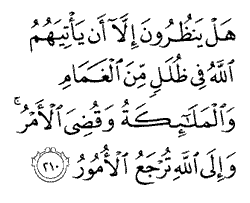 هَلْ يَنظُرُونَ إِلَّآ أَن يَأْتِيَهُمُ
ٱللَّهُ فِى ظُلَلٍ مِّنَ ٱلْغَمَامِ
وَٱلْمَلَـٰٓئِكَةُ وَقُضِىَ ٱلْأَمْرُ ۚ
وَإِلَى ٱللَّهِ تُرْجَعُ ٱلْأُمُورُ ٢١٠